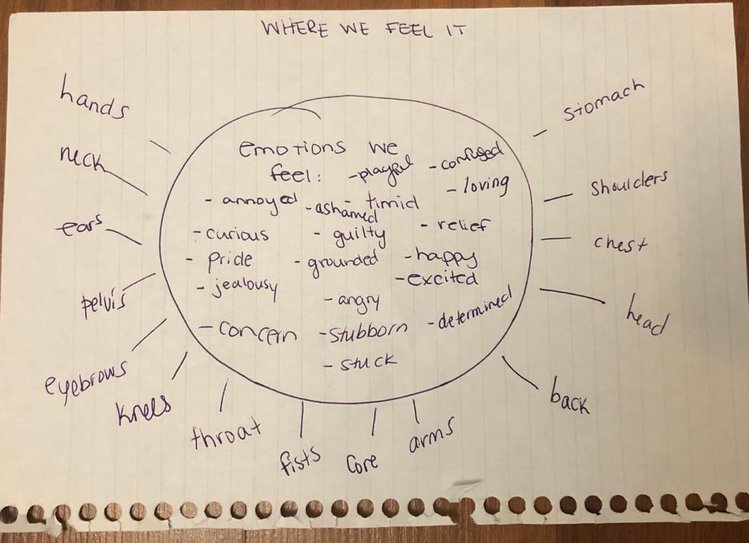 WHERE WE FEEL IT
hands
neck
ears
pelvis
eyebrows
knees
throat
fists
core
arms
back
head
chest
shoulders
stomach
emotions we
feel:
- playful
- confused
- loving
- annoyed
- ashamed
- timid
- curious
- guilty
- relief
- pride
- grounded
- happy
- jealousy
- excited
- angry
- concern
- stubborn
- determined
- stuck